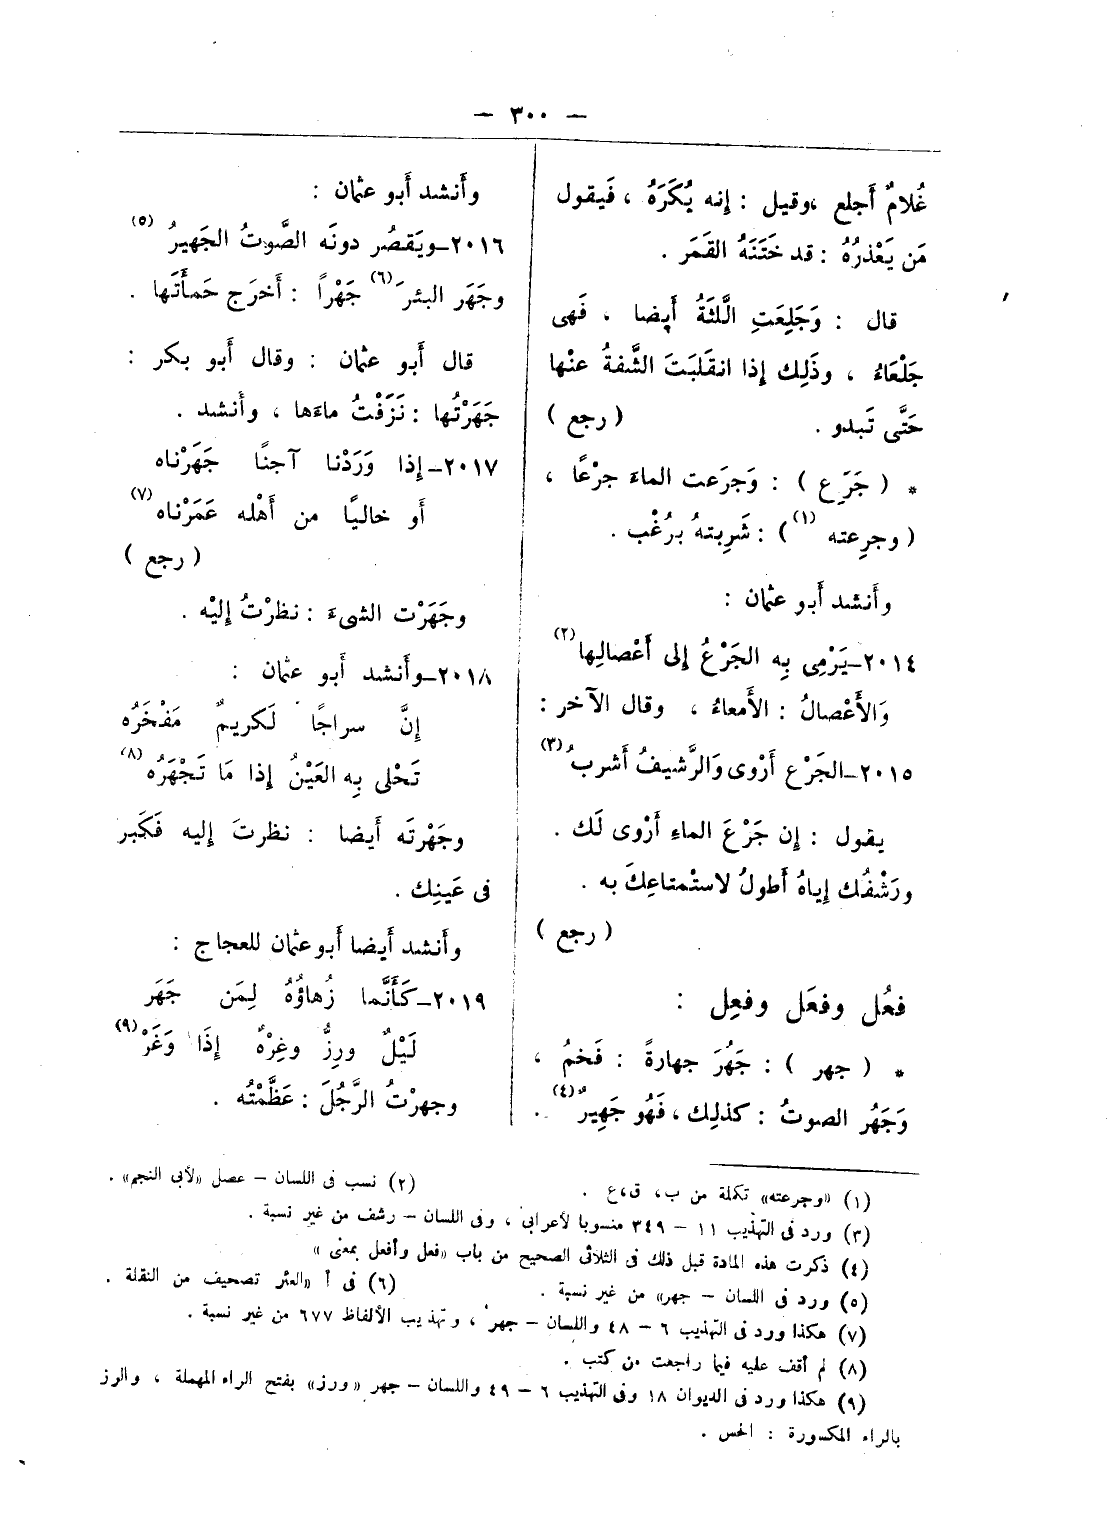 — ٣٠٠ —
غُلامٌ أَجلع ،وقيل : إِنه يُكَرَهُ ، فَيقول
مَن يَعْذرُهُ : قد خَتَنَهُ القَمَر .
قال : وَجَلِعَتِ الَّلثَةُ أَيضا ، فَهى
جَلْعَاءُ ، وذَلِك إِذا انقَلبَتَ الشَّفةُ عنْها
حَتَّى تَبدو . ( رجع )
* ( جَرَِع ) : وَجرَعت الماءَ جرْعًا ،
( وجرِعته (١) ) : شَرِبتهُ برُغْب .
وأَنشد أَبو عثمان :
٢٠١٤–يَرْمِى بِه الجَرْعُ إِلى أَعْصالِها (٢)
وَالأَعْصالُ : الأَمعاءُ ، وقال الآخر :
٢٠١٥–الجَرْع أَرْوى وَالرَّشيفُ أَشربُ (٣)
يقول : إِن جَرْعَ الماءِ أَرْوى لَك .
ورَشْفُك إِياهُ أَطولُ لاستْمتاعِكَ به .
( رجع )
فعُل وفعَل وفعِل :
* ( جهر ) : جَهُرَ جهارةً : فَخمُ ،
وَجَهُر الصوتُ : كذلِك ، فَهُو جَهِيرٌ (٤) .
وأَنشد أَبو عثمان :
٢٠١٦–ويَقصُر دونَه الصَّوتُ الجَهيرُ (٥)
وجَهَر البئرَ (٦) جَهْراً : أَخرَج حَمأَتَها .
قال أَبو عثمان : وقال أَبو بكر :
جَهَرْتُها : نَزَفْتُ ماءَها ، وأَنشد .
٢٠١٧–إِذا وَرَدْنا آجنًا جَهَرْناه
أَو خاليًا من أَهْله عَمَرْناه (٧)
( رجع )
وجَهَرْت الشىءَ : نظرْتُ إِليْه .
٢٠١٨–وأَنشد أَبو عثمان :
إِنَّ سراجًا لَكريمٌ مَفْخَرُه
تَحْلى بِه العَيْنُ إِذا مَا تَجْهَرُه (٨)
وجَهْرتَه أَيضا : نظرتَ إِليه فَكَبر
فى عَينِك .
وأَنشد أَيضا أَبو عثمان للعجاج :
٢٠١٩–كَأَنَّما زُهاؤُهُ لِمَن جَهَر
لَيْلٌ ورِزُّ وغِرْهٌ إِذَا وَغَرْ (٩)
وجهرْتُ الرَّجُلَ : عَظَّمْتُه .
(١) «وجرعته» تكملة من ب، ق،ع . (٢) نسب فى اللسان – عصل «لأبى النجم» .
(٣) ورد فى التهذيب ١١ – ٣٤٩ منسوبا لأعرابى ، وفى اللسان – رشف من غير نسبة .
(٤) ذكرت هذه المادة قبل ذلك فى الثلاثى الصحيح من باب «فعل وأفعل بمعنى »
(٥) ورد فى اللسان – جهر» من غير نسبة . (٦) فى أ «العثر تصحيف من النقلة .
(٧) هكذا ورد فى التهذيب ٦ – ٤٨ واللسان – جهر ، وتهذيب الألفاظ ٦٧٧ من غير نسبة .
(٨) لم أقف عليه فيما راجعت من كتب .
(٩) هكذا ورد فى الديوان ١٨ وفى التهذيب ٦ – ٤٩ واللسان – جهر «ورز» بفتح الراء المهملة ، والرز
بالراء المكسورة : الحس .